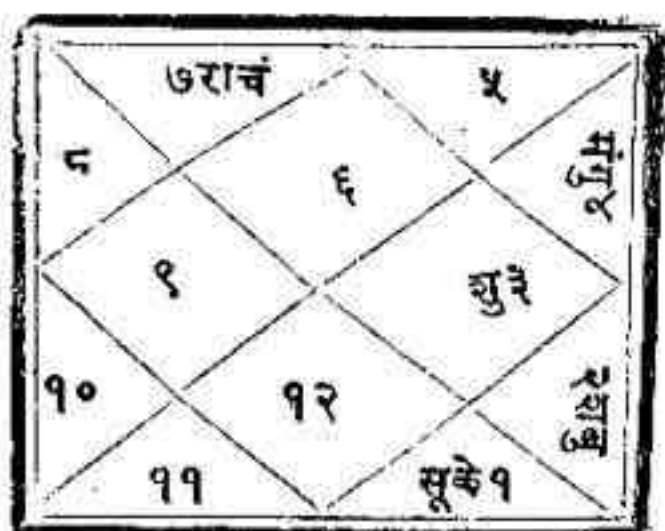 ७राचं
५
८
६
मंगु४
९
शु३
१०
१२
२शबु
११
सूके१